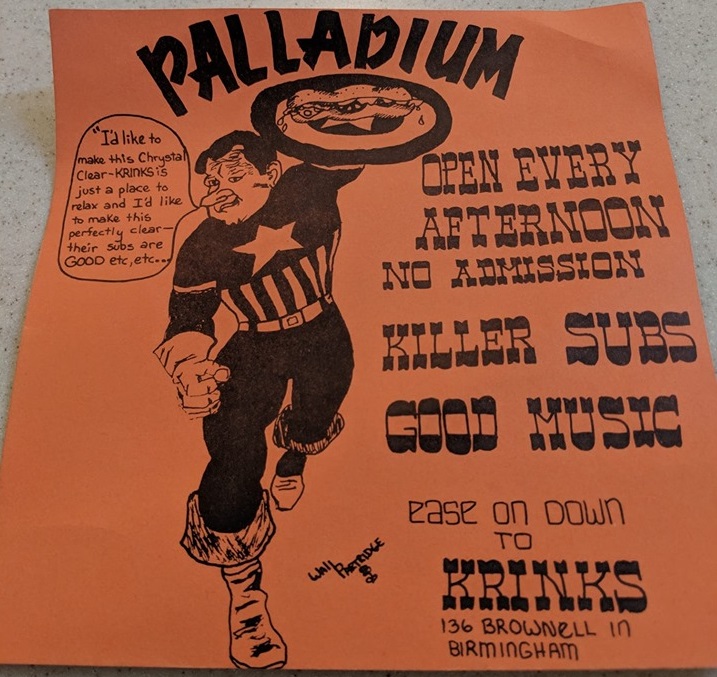 PALLADIUM
"I'd like to
make this Chrystal
Clear-KRINKS is
just a place to
relax and I'd like
to make this
perfectly clear—
their subs are
GOOD etc, etc...
OPEN EVERY
AFTERNOON
NO ADMISSION
KILLER SUBS
GOOD MUSIC
ease on DOWN
TO
KRINKS
136 BROWNELL in
BIRMINGHAM
Wall PARTRIDGE